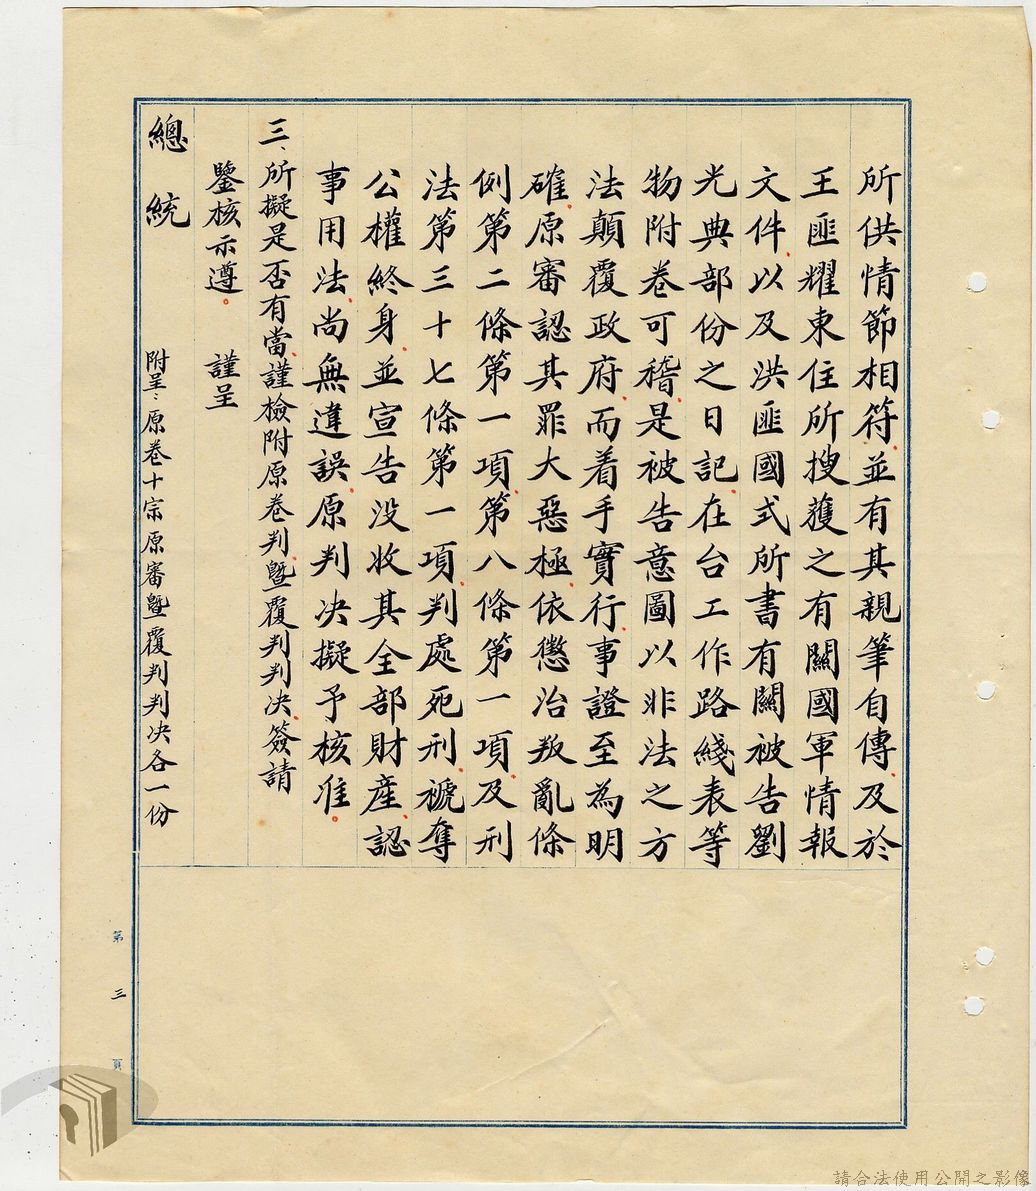 所供情節相符、並有其親筆自傳、及於
王匪耀東住所搜護之有關國軍情報
文件、以及洪匪國式所書有關被告劉
光典部份之日記、在台工作路綫表等
物附卷可稽、是被告意圖以非法之方
法顛覆政府、而着手實行、事證至為明
確、原審認其罪大惡極、依懲治叛亂條
例第二條第一項、第八條第一項、及刑
法第三十七條第一項、判處死刑、褫奪
公權終身、並宣告没收其全部財產、認
事用法、尚無違誤、原判決擬予核准。
三、所擬是否有當、謹檢附原卷判、暨覆判判決、簽請
鑒核示遵。 謹呈
總統 附呈:原卷十宗原審暨覆判判決各一份
第三頁
請合法使用公開之影像